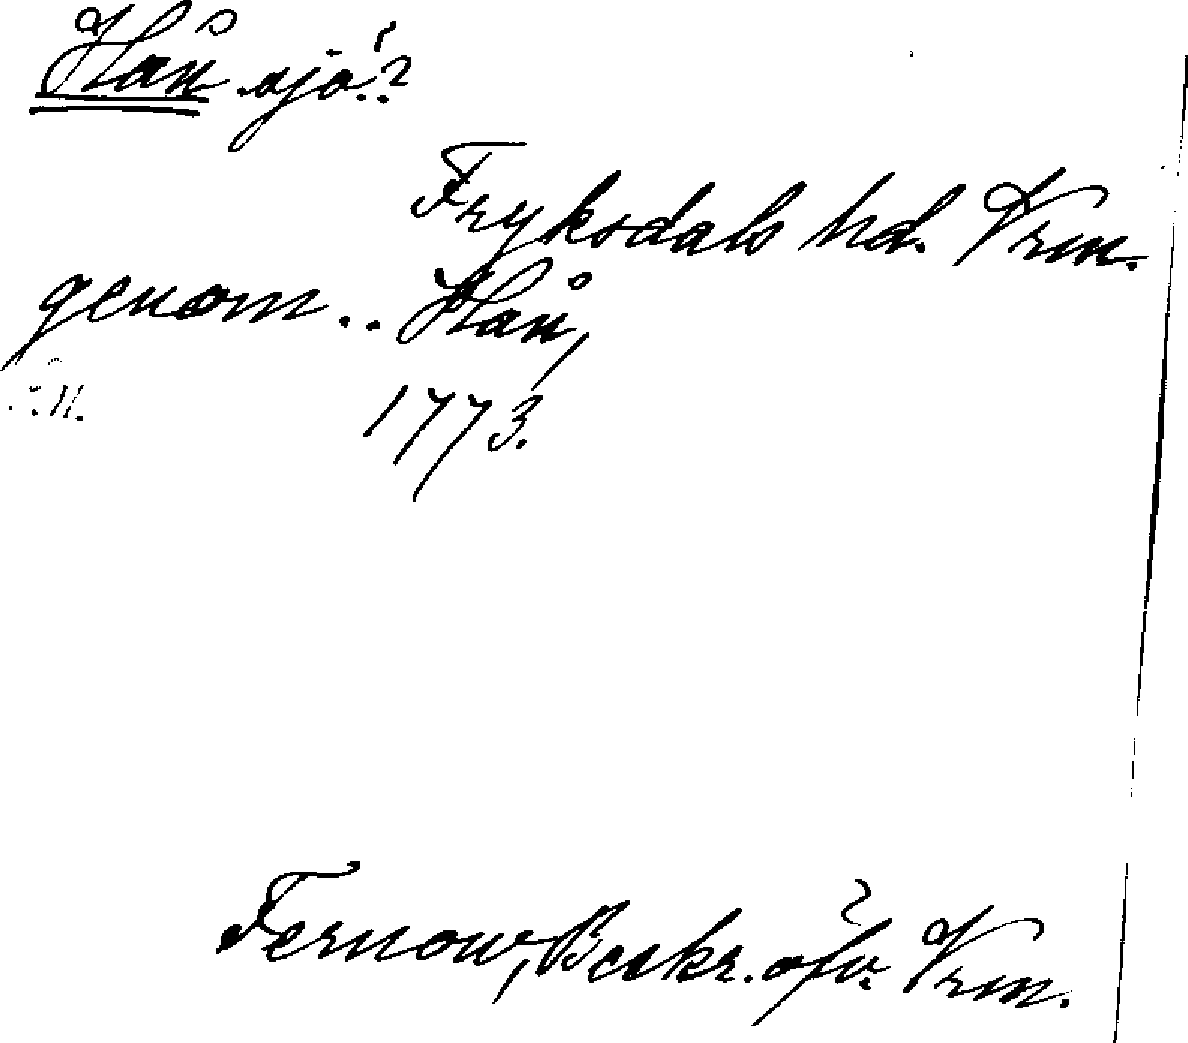 Hån sjö?
Fryksdals hd. Vrm.
genom .. Hån,
1773.
Fernow, Beskr. öfv. Vrm.